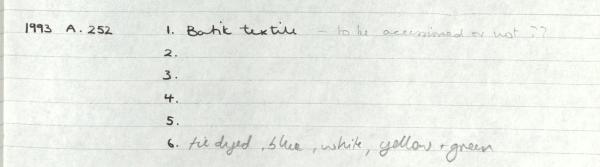 1993 A. 252 1. Batik textile – to be accessioned or not ??
2.
3.
4.
5.
6. tie dyed, blue, white, yellow + green